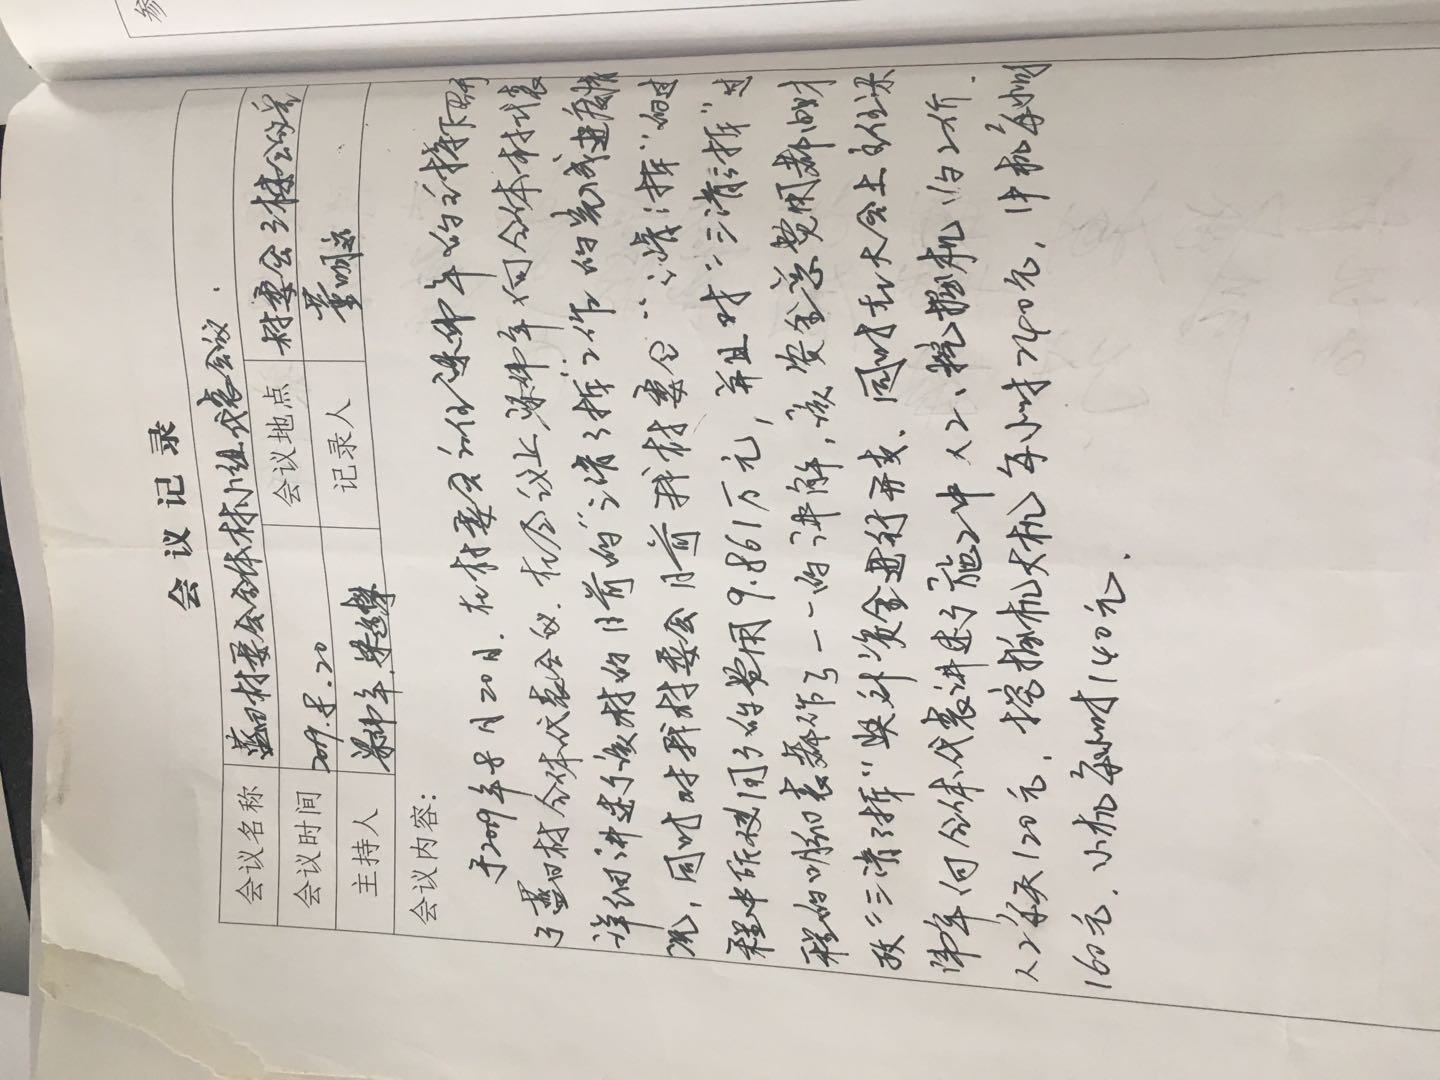 会议记录
会议名称 蓝田村委会全体村小组代表会议.
会议时间 2019.8.20 会议地点 村委会3楼会议室
主持人 梁坤年 记录人
会议内容:
于2019年8月20日.在村委会主任梁坤年的主持下召开
了蓝田村全体代表会议.在会议上梁坤年向全体村代表
详细讲述了该村的目前的"三清三拆"工作的完成进度情
况,同时对我村委会目前我村委会"三清三拆"的过
程中所使用了的费用9.861万元,并且对"三清三拆"过
程的明细表都作了一一的讲解,该资金总费用都由财
政"三清三拆"奖补资金进行开支.同时在大会上主任梁
坤年向全体代表讲述了施工中人工、挖掘机的工价.
人工每天120元.挖掘机大机每小时240元,中机每小时
160元.小机每小时140元.